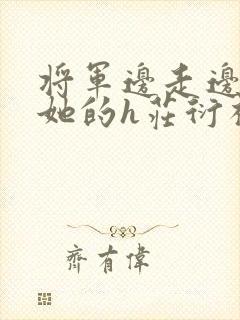 將軍邊走邊
她的h莊衍
齊有偉